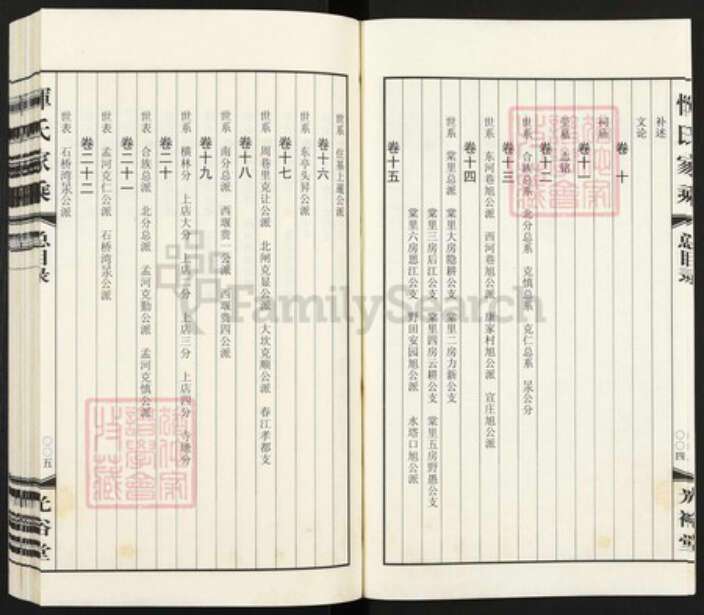 补述
文论
卷十
祠庙
茔墓 志铭
卷十一
卷十二
世系 合族总系 北分总系 克慎总系 克仁总系 杲公分
卷十三
世系 东河巷旭公派 西河巷旭公派 康家村旭公派 宣庄旭公派
卷十四
世系 棠里总派 棠里大房隐耕公支 棠里二房力新公支
棠里三房后江公支 棠里四房云耕公支 棠里五房野愚公支
棠里六房恩江公支 野田安园旭公派 水塔口旭公派
卷十五
恽氏家乘 总目录 〇〇四 光裕堂
世系 庄基上暹公派
卷十六
世系 东亭头昇公派
卷十七
世系 周巷里克让公派 北闸克显公派 大坎克顺公派 春江孝都支
卷十八
世系 南分总派 西堰贵一公派 西堰贵四公派
卷十九
世系 横林分 上店大分 上店二分 上店三分 上店四分 寺塘分
卷二十
世表 合族总派 北分总派 孟河克勤公派 孟河克慎公派
卷二十一
世表 孟河克仁公派 石桥湾杲公派
卷二十二
世表 石桥湾杲公派
恽氏家乘 总目录 〇〇五 光裕堂
FamilySearch